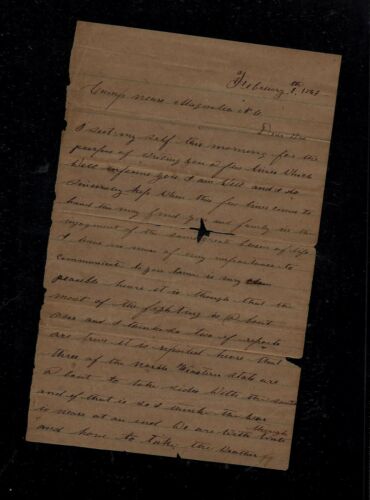 February 8th, 186
Camp near Magnolia N C
Dear
I seat my self this morning for the
purpos of writing you a few lines which
will informe you I am well and I do
sincerely hope when this few lines come to
hand tha may find you and family in the
injoyment of the same great blesen of life
I have no news of any importance to
communicate to you
peasible here it is though that the
most of the fighting is a bout
over and I think so two if reports
are true it is reported here that
three of the north western state are
a bout to take sides with the south
and if that is so I think the war
is near at an end
and home to take the